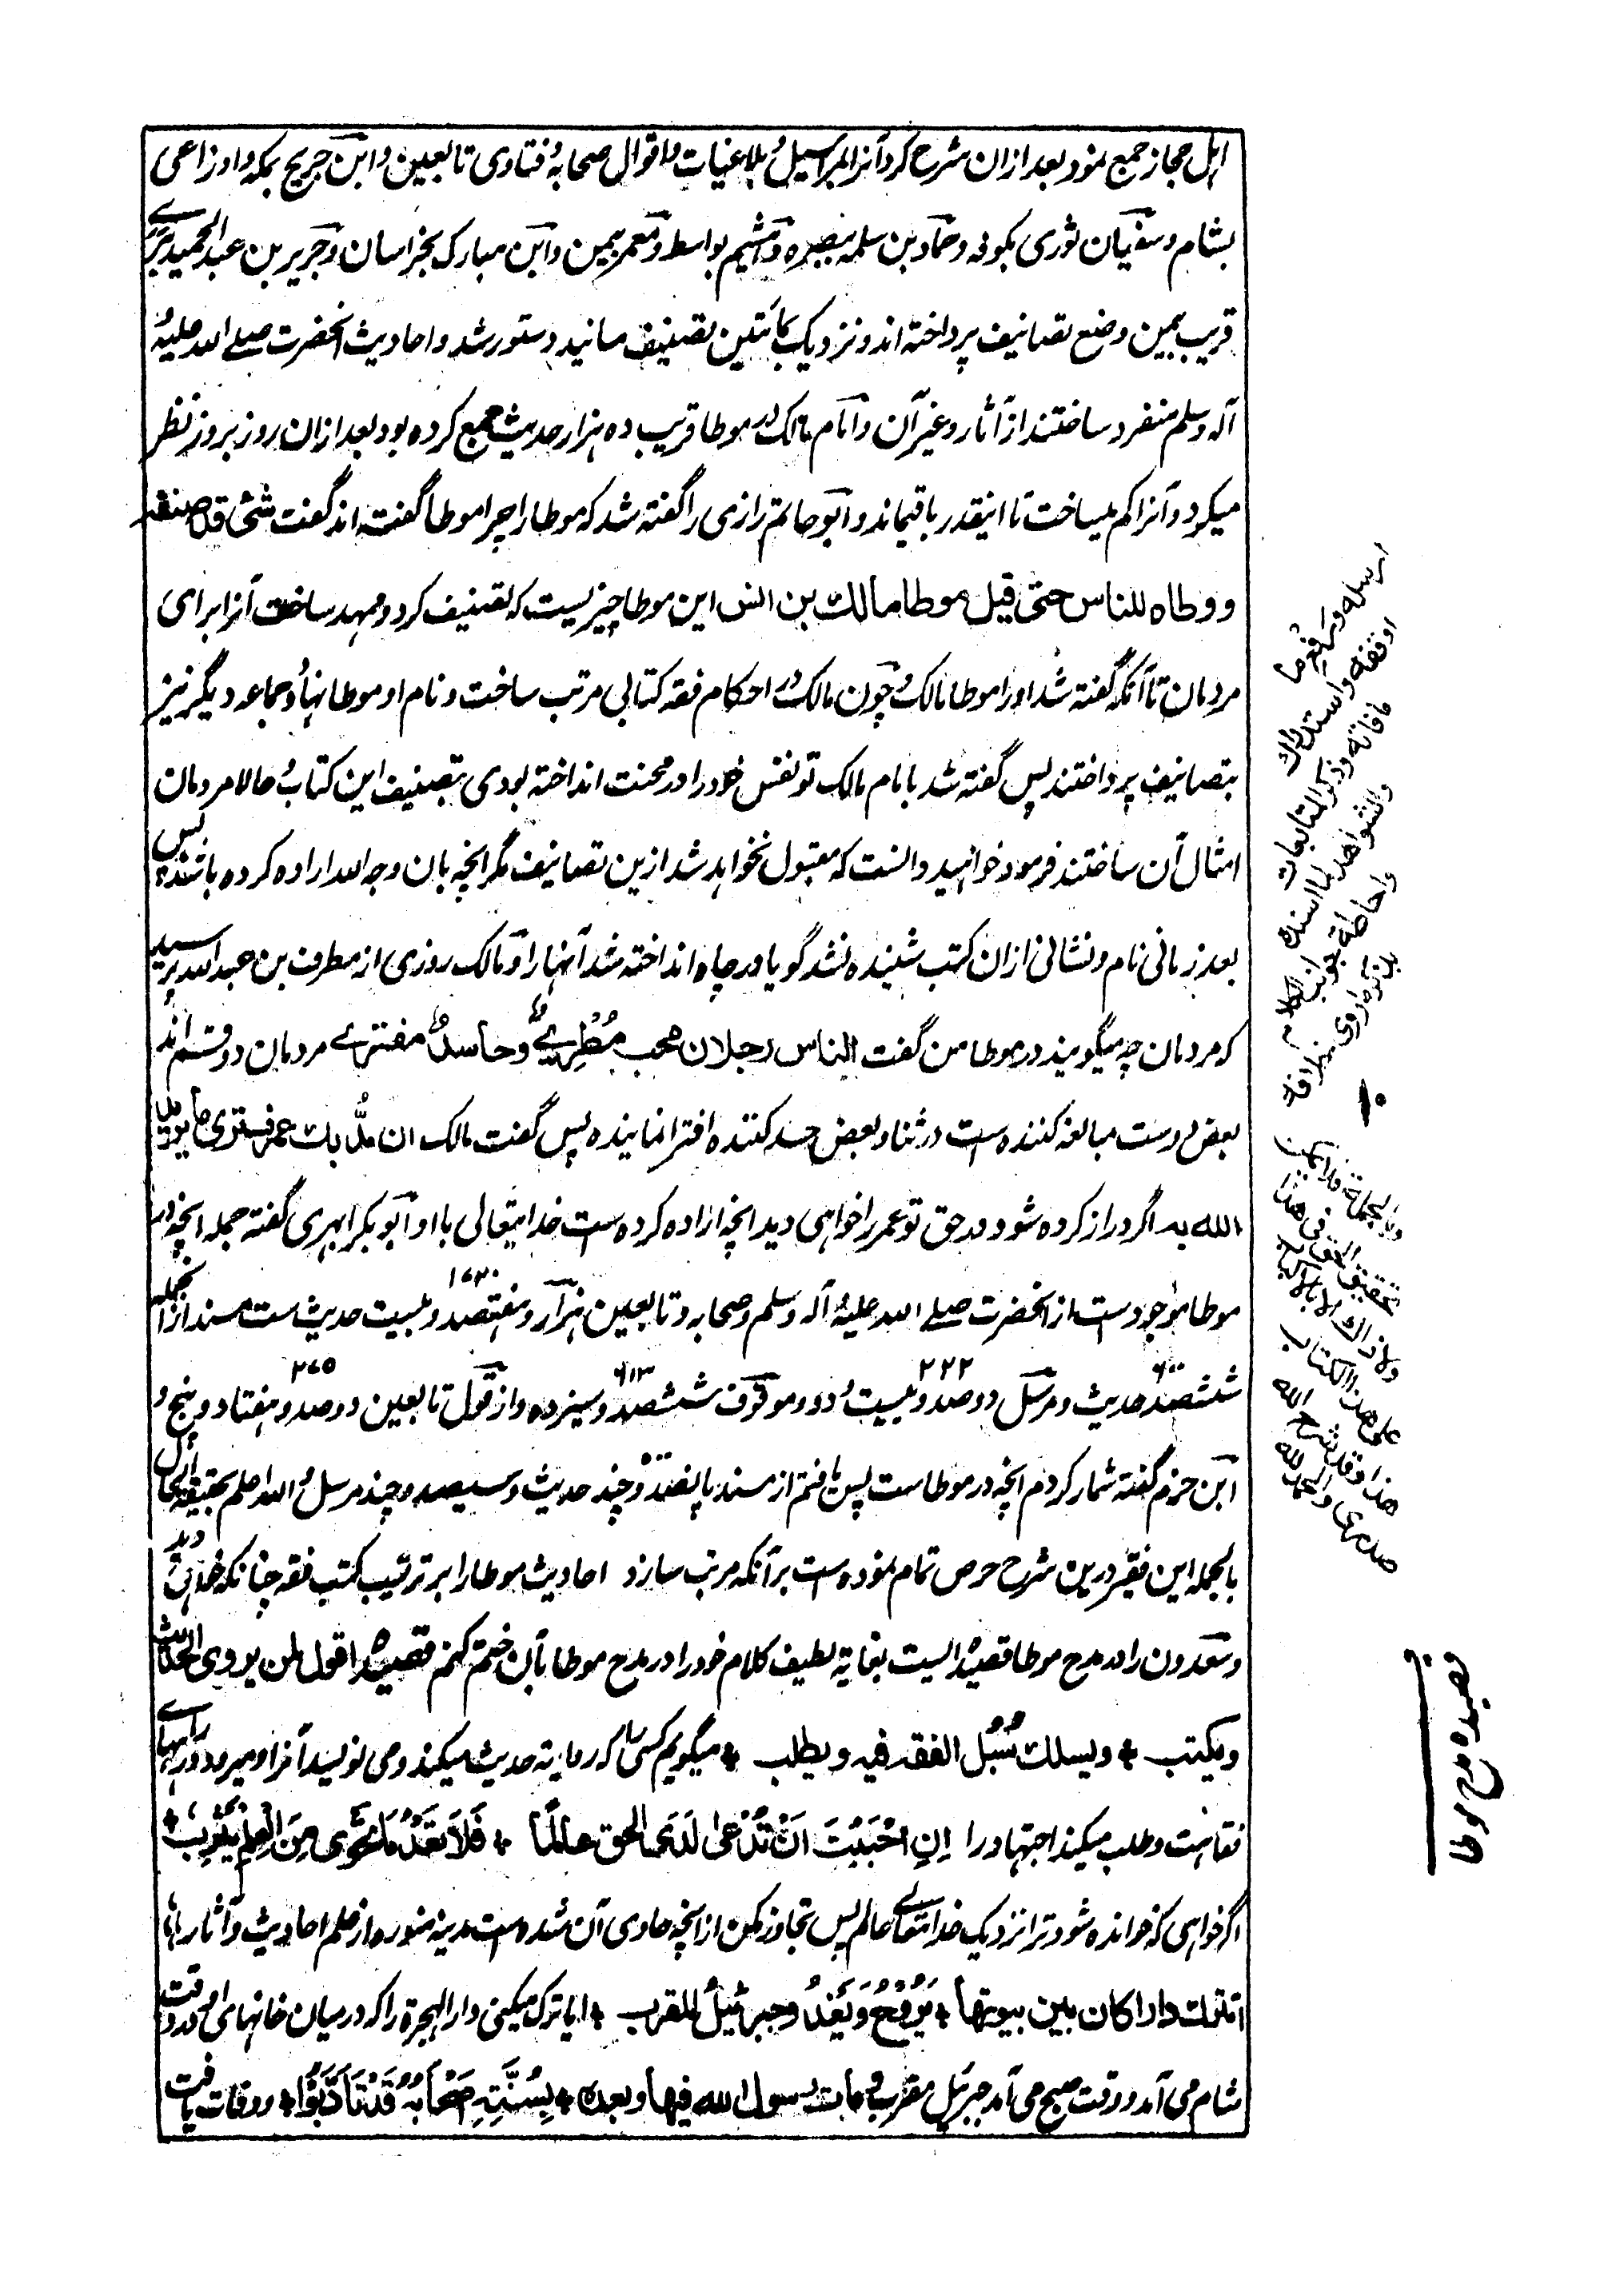 اہل حجاز جمع نمود بعد ازان شرح کرد آنرا بمراسیل و بلاغیات و اقوال صحابہ و فتاوی تابعین و ابن جریج بمکہ و اوزاعی
بشام و سفیان ثوری بکوفہ و حماد بن سلمہ ببصرہ و ہشیم بواسط و معمر بیمن و ابن مبارک بخراسان و جریر بن عبدالحمید بری
قریب بہمین وضع تصانیف پرداختہ اند و نزدیک بمأتین تصنیف مسانید دستور شد و احادیث آنحضرت صلے اللہ علیہ و
آلہ وسلم منفرد ساختند از آثار و غیر آن و امام مالک در موطا قریب دہ ہزار حدیث جمع کردہ بود بعد ازان روز بروز نظر
میکرد و آنرا کم میساخت تا اینقدر باقیماند و ابو حاتم رازی را گفتہ شد کہ موطا را چرا موطا گفتہ اند گفت شئ قد صنفہ
ووطاہ للناس حتی قیل موطا مالک بن انس این موطا چیزیست کہ تصنیف کرد و مہد ساخت آنرا برای
مردمان تا آنکہ گفتہ شد او را موطا مالک و چون مالک در احکام فقہ کتابی مرتب ساخت و نام او موطا نہاد جماعہ دیگر نیز
بتصانیف پرداختند پس گفتہ شد با امام مالک تو نفس خود را در محنت انداختہ بودی بتصنیف این کتاب و حالا مردمان
امثال آن ساختند فرمود خواہید دانست کہ مقبول نخواہد شد ازین تصانیف مگر آنچہ بان وجہ اللہ ارادہ کردہ باشند پس
بعد زمانی نام و نشانی ازان کتب شنیدہ نشد گویا در چاہ انداختہ شد آنہا را و مالک روزی از مطرف بن عبداللہ پرسید
کہ مردمان چہ میگویند در موطا من گفت الناس رجلان محب مُطْرِیٌ و حاسدٌ مفتری مردمان دو قسم اند
بعض دوست مبالغہ کنندہ ست در ثنا و بعض حسد کنندہ افترا نمایندہ پس گفت مالک ان مُدَّ بک عمر فستری ما یرید
اللہ بہ اگر دراز کردہ شود در حق تو عمر را خواہی دید آنچہ ارادہ کردہ ست خدایتعالی با او ابو بکر ابہری گفتہ جملہ آنچہ در
موطا موجود ست از آنحضرت صلے اللہ علیہ و آلہ وسلم و صحابہ و تابعین ہزار و ہفتصد و بیست حدیث ست ۱۷۲۰ مسند ازانجملہ
ششصد ۶۰۰ حدیث و مرسل دوصد و بیست و دو ۲۲۲ و موقوف ششصد و سیزدہ ۶۱۳ و از قول تابعین دوصد و ہفتاد و پنج ۲۷۵ و
ابن حزم گفتہ شمار کردم آنچہ در موطاست پس یافتم از مسند پانصد و چند حدیث و سیصد و چند مرسل و اللہ اعلم بحقیقۃ الحال
بالجملہ این فقیر درین شرح حرص تمام نمودہ ست بر آنکہ مرتب سازد احادیث موطا را بر ترتیب کتب فقہ چنانکہ خواہی دید
و سعدون را در مدح موطا قصیدہ ایست بغایۃ لطیف کلام خود را در مدح موطا بآن ختم کنم قصیدہ اقول لمن یروی الحدیث
ویکتب * ویسلک سُبُل الفقہ فیہ ویطلب * میگویم کسی را کہ روایۃ حدیث میکند و می نویسد آنرا و میرود در راہہای
فقاہت و طلب میکند اجتہاد را اِنِ احْبَبْتَ اَنْ تُدْعٰی لَدَی الحق عالمًا * فَلَا تَعْدُ مَا تحْوِی مِنَ الْعِلْمِ یَثْرِبُ *
اگر خواہی کہ خواندہ شود ترا نزدیک خدایتعالے عالم پس تجاوز مکن از آنچہ حاوی آن شدہ ست مدینہ منورہ از علم احادیث و آثار
اتترک دارا کان بین بیوتھا * یَرُوْحُ وَ یَغْدُ وجبرئیلُ المقرب * ایا ترک میکنی دار الہجرۃ را کہ درمیان خانہای او وقت
شام می آمد و وقت صبح می آمد جبرئیل مقرب و مات رسول اللہ فیھا وبعدہ * بِسُنَّتِہٖ اَصْحَابُہٗ قَدْ تَاَدَّبُوْا * و وفات یافت
ارسلہ و رفع ما
اوقفہ واستدراک
ما فاتہ وذکر المتابعات
والشواہد لما اسندہ
واحاطۃ جوانب الکلام
بذکر ما روی خلافہ
۱۰
وبالجملۃ فلا یمکن
تحقیق الحق فی ھذا
ولا ذاک الا بالاکباب
علی ھذا الکتاب
ھذا وقد شرح اللہ
صدری والحمد للہ
قصیدہ مدح موطا